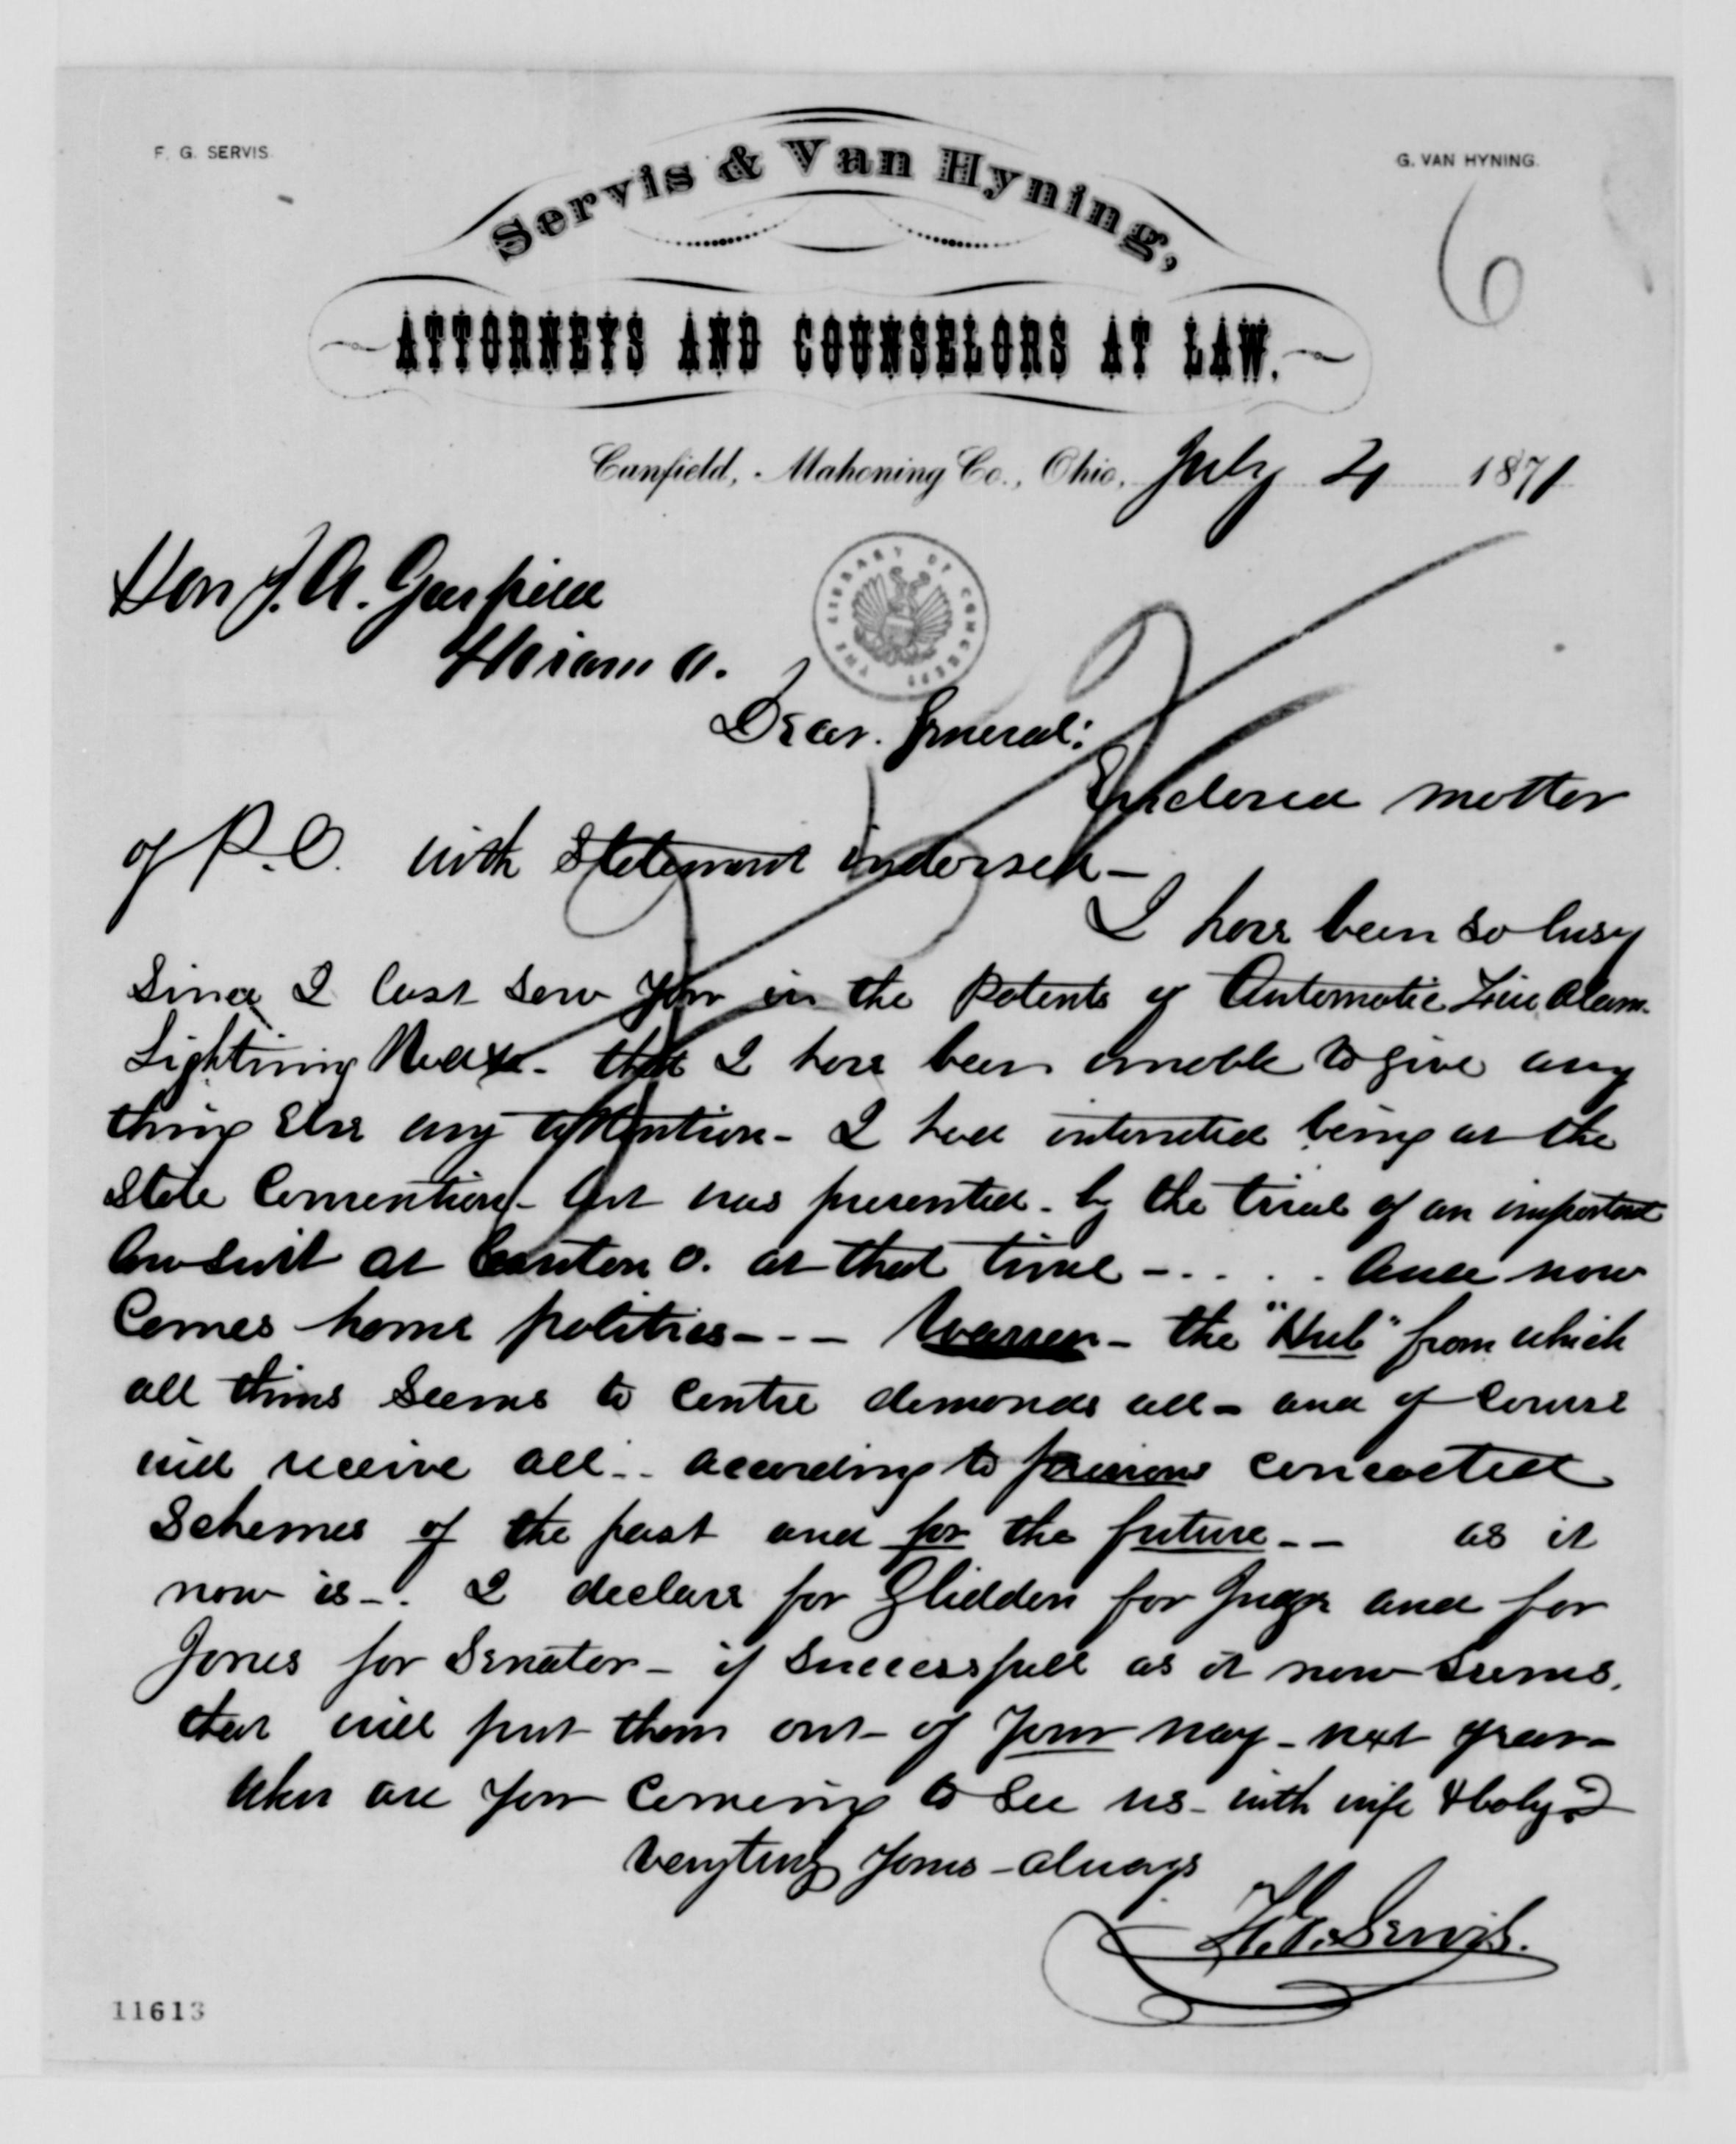 F. G. SERVIS.
G. VAN HYNING.
Servis & Van Hyning,
6
ATTORNEYS AND COUNSELORS AT LAW.
Canfield, Mahoning Co., Ohio, July 21 1871
Hon J. A. Garfield
Hiram O.
THE LIBRARY OF CONGRESS
Dear General:
Enclosed matter
of P.O. with Statement indorsed -
I have been so busy
Since I last saw you in the Patents of Automatic Fire Alarm
Lightning - that I have been unable to give any
thing Else any attention - I had intended being at the
State Convention - but was prevented - by the trial of an important
law suit at Canton O. at that time - . . . . And now
Comes home politics - - - Warren - the "Hub" from which
all things Seems to Centre demands all - and of course
will receive all - . according to previous concocted
Schemes of the past and for the future - - as it
now is - . I declare for Glidden for Judge and for
Jones for Senator - if Successfull as it now Seems.
that will put them out - of your way - next year -
When are you Coming to See us - with wife & baby?
Very truly Yours - always
F. G. Servis.
11613